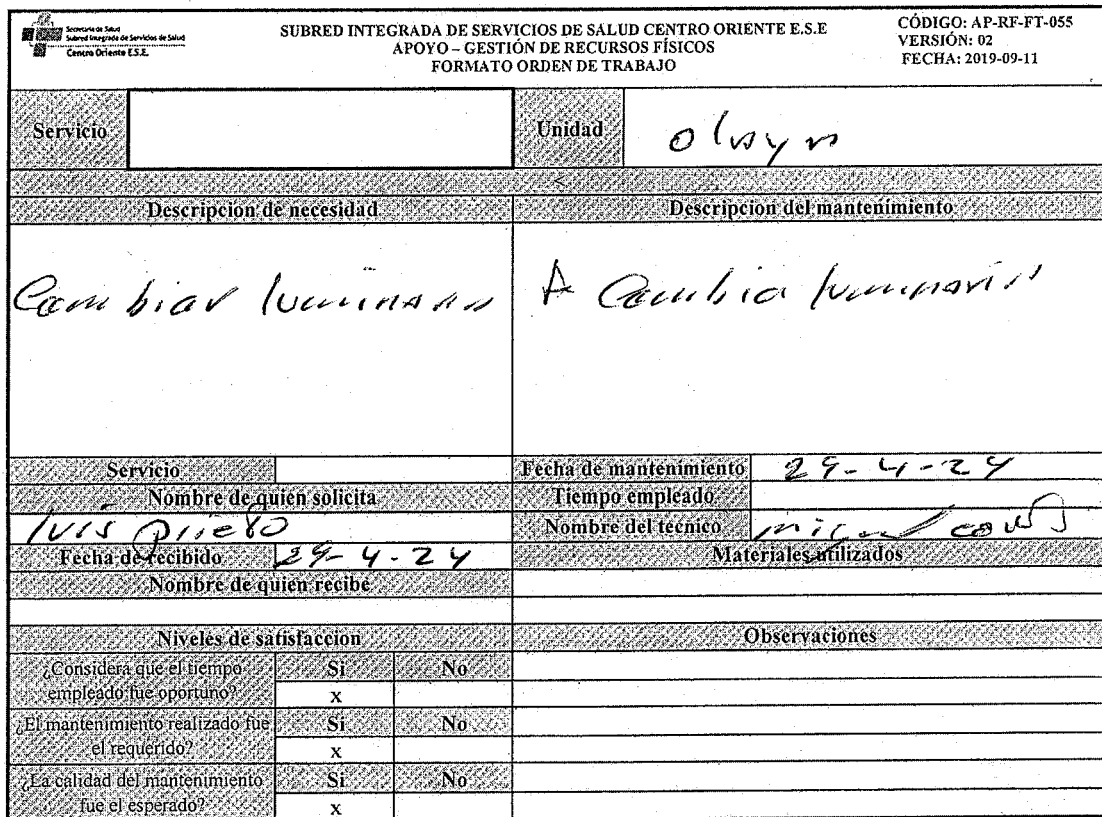 Secretaría de Salud
Subred Integrada de Servicios de Salud
Centro Oriente E.S.E.
SUBRED INTEGRADA DE SERVICIOS DE SALUD CENTRO ORIENTE E.S.E
APOYO – GESTIÓN DE RECURSOS FÍSICOS
FORMATO ORDEN DE TRABAJO
CÓDIGO: AP-RF-FT-055
VERSIÓN: 02
FECHA: 2019-09-11
Servicio
Unidad
Descripcion de necesidad
Descripcion del mantenimiento
Cambiar
A Cambia
Servicio
Fecha de mantenimiento 29-4-24
Nombre de quien solicita
Tiempo empleado
luis prieto
Nombre del tecnico miguel
Fecha de recibido 29-4-24
Materiales utilizados
Nombre de quien recibe
Niveles de satisfaccion
Observaciones
¿Considera que el tiempo empleado fue oportuno?
Si No
x
¿El mantenimiento realizado fue el requerido?
Si No
x
¿La calidad del mantenimiento fue el esperado?
Si No
x